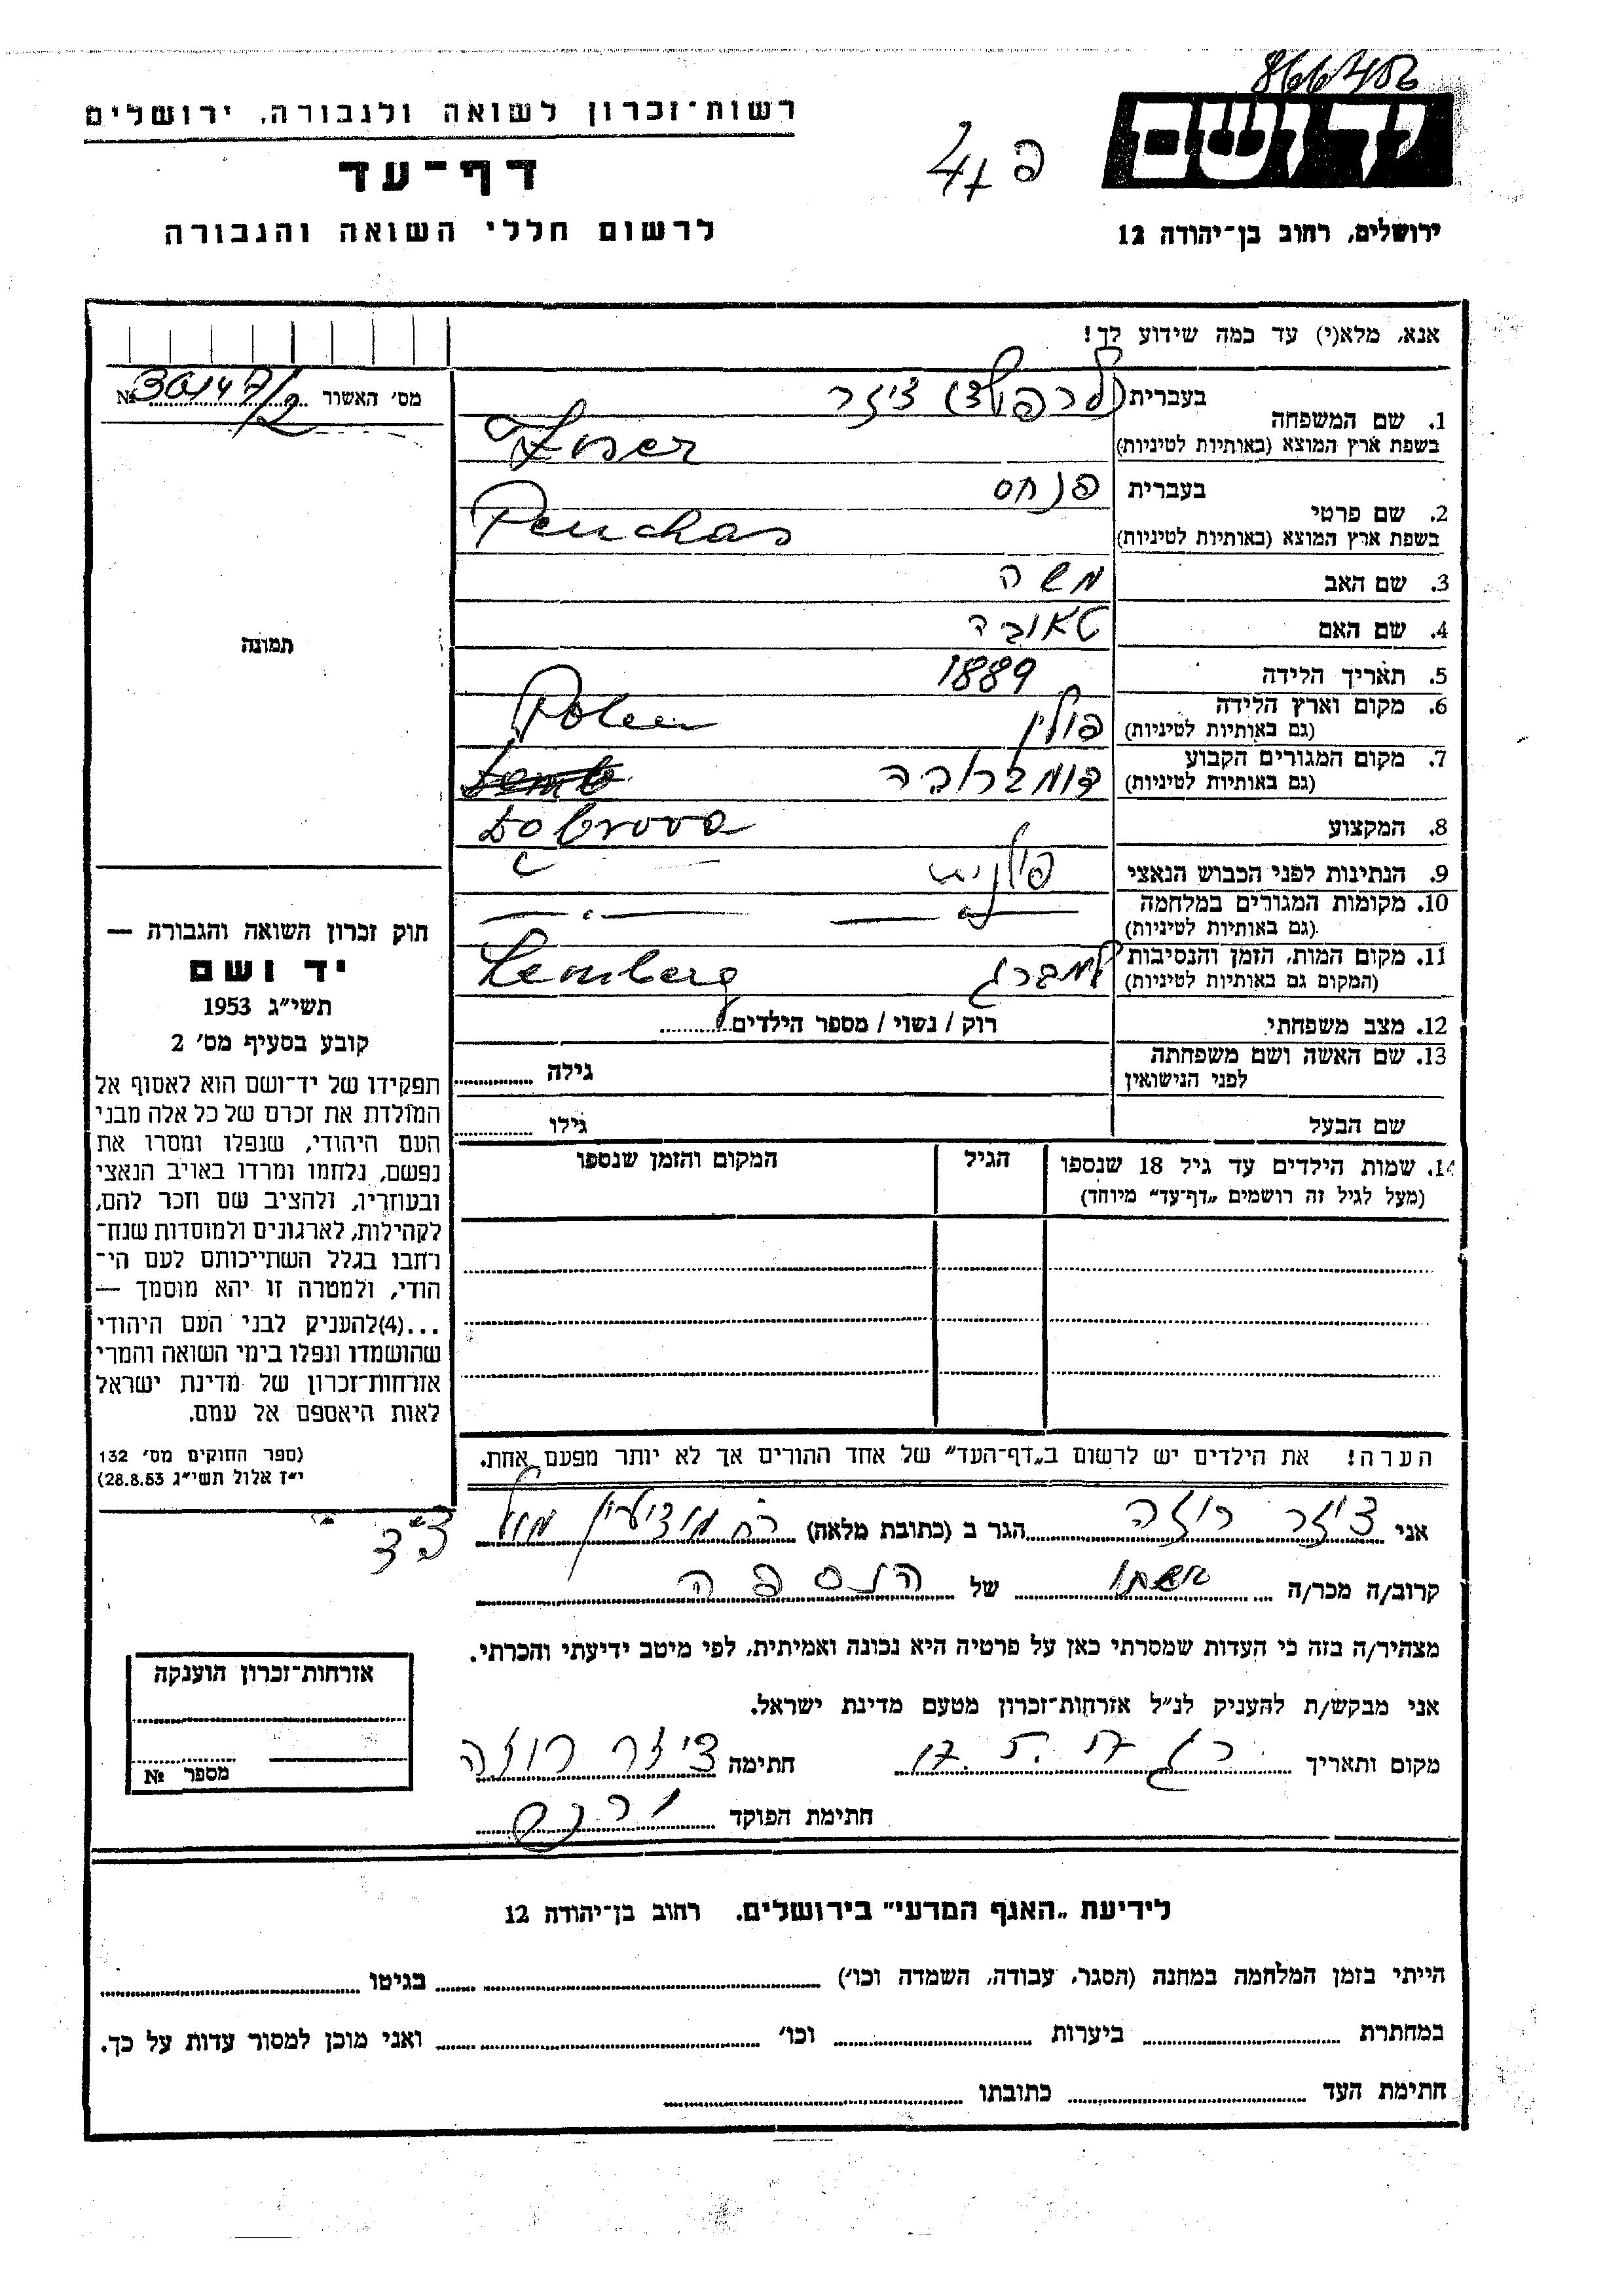 866406
רשות־זכרון לשואה ולגבורה, ירושלים
דף־עד
לרשום חללי השואה והגבורה
ידושם
ירושלים, רחוב בן־יהודה 12
אנא, מלא(י) עד כמה שידוע לך!
מס׳ האשור № 30147/2
1. שם המשפחה
בעברית ציזר
בשפת ארץ המוצא (באותיות לטיניות)
2. שם פרטי
בעברית פנחס
בשפת ארץ המוצא (באותיות לטיניות) Penchas
3. שם האב משה
4. שם האם טאובה
5. תאריך הלידה 1889
6. מקום וארץ הלידה פולין Polen
(גם באותיות לטיניות)
7. מקום המגורים הקבוע דומברובה
(גם באותיות לטיניות)
8. המקצוע Dąbrova
9. הנתינות לפני הכבוש הנאצי פולנית
10. מקומות המגורים במלחמה
(גם באותיות לטיניות)
11. מקום המות, הזמן והנסיבות למברג Lemberg
(המקום גם באותיות לטיניות)
12. מצב משפחתי רוק / נשוי / מספר הילדים
13. שם האשה ושם משפחתה גילה
לפני הנישואין
שם הבעל גילו
14. שמות הילדים עד גיל 18 שנספו הגיל המקום והזמן שנספו
(מעל לגיל זה רושמים „דף־עד״ מיוחד)
הערה! את הילדים יש לרשום ב„דף־העד״ של אחד ההורים אך לא יותר מפעם אחת.
תמונה
חוק זכרון השואה והגבורה —
יד ושם
תשי״ג 1953
קובע בסעיף מס׳ 2
תפקידו של יד־ושם הוא לאסוף אל
המולדת את זכרם של כל אלה מבני
העם היהודי, שנפלו ומסרו את
נפשם, נלחמו ומרדו באויב הנאצי
ובעוזריו, ולהציב שם וזכר להם,
לקהילות, לארגונים ולמוסדות שנח־
רחבו בגלל השתייכותם לעם הי־
הודי, ולמטרה זו יהא מוסמך —
...(4)להעניק לבני העם היהודי
שהושמדו ונפלו בימי השואה והמרי
אזרחות־זכרון של מדינת ישראל
לאות היאספם אל עמם.
(ספר החוקים מס׳ 132
י״ז אלול תשי״ג 28.8.53)
אני ציזר רוזה הגר ב (כתובת מלאה)
קרוב/ה מכר/ה אשתו של הנספה
מצהיר/ה בזה כי העדות שמסרתי כאן על פרטיה היא נכונה ואמיתית, לפי מיטב ידיעתי והכרתי.
אני מבקש/ת להעניק לנ״ל אזרחות־זכרון מטעם מדינת ישראל.
מקום ותאריך חתימה ציזר רוזה
חתימת הפוקד
אזרחות־זכרון הוענקה
מספר №
לידיעת „האגף המדעי״ בירושלים. רחוב בן־יהודה 12
הייתי בזמן המלחמה במחנה (הסגר, עבודה, השמדה וכו׳) בגיטו
במחתרת ביערות וכו׳ ואני מוכן למסור עדות על כך.
חתימת העד כתובתו